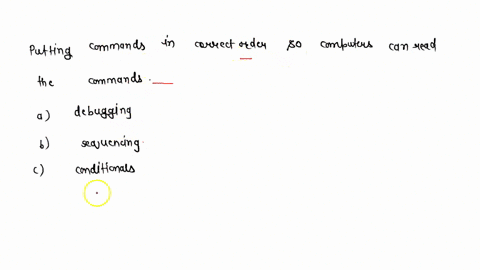 Putting commands in correct order so computers can read
the commands.
a) debugging
b) sequencing.
c) conditionals